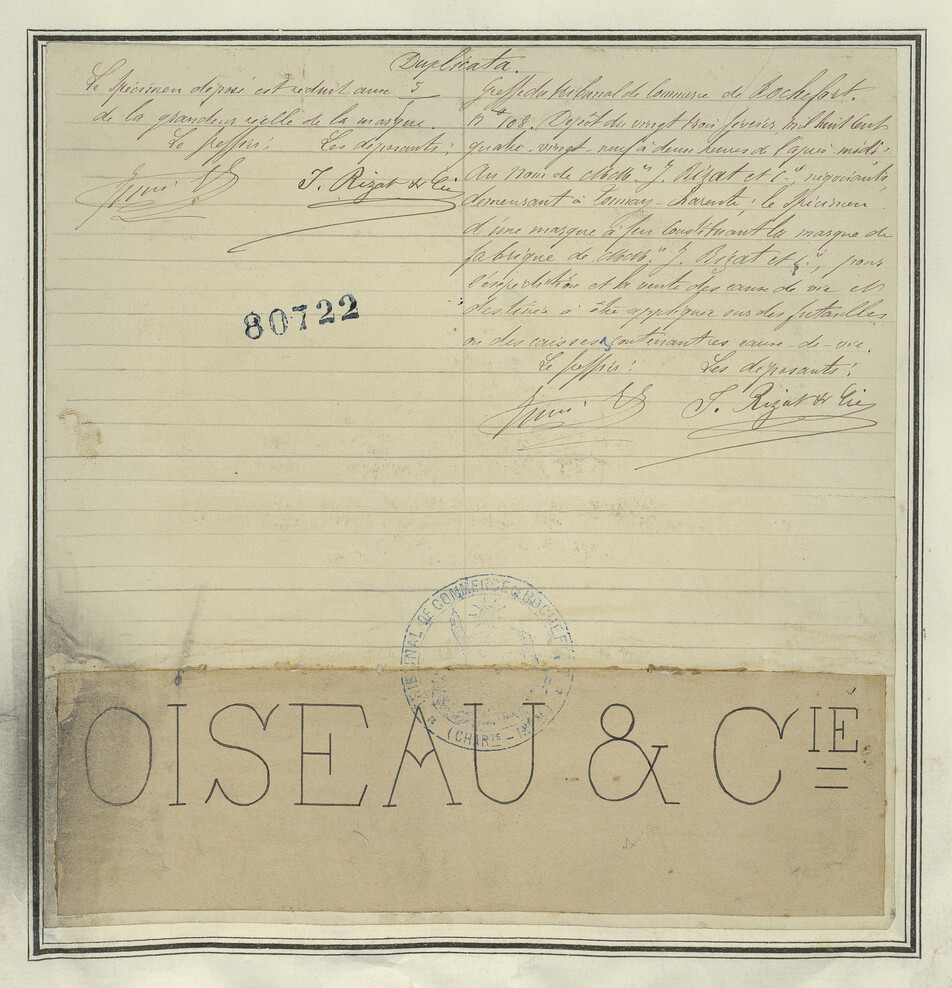 Duplicata.
Le spécimen déposé est réduit aux 3
de la grandeur réelle de la marque.
Le greffier: Les déposants:
J. Rizat & Cie
Greffe du tribunal de Commerce de Rochefort.
N° 108. Dépôt du vingt trois février, mil huit cent
quatre-vingt-neuf à deux heures de l'après-midi:
Au nom de MM. J. Rizat et Cie, négociants,
demeurant à Tonnay-Charente; le spécimen
d'une marque à feu constituant la marque de
fabrique de MM. J. Rizat et Cie, pour
l'expédition et la vente des eaux de vie et
destinée à être appliquée sur des futailles
ou des caisses contenant ces eaux-de-vie.
Le greffier: Les déposants:
J. Rizat & Cie
80722
TRIBUNAL DE COMMERCE DE ROCHEFORT
(CHARTE-INFRE)
OISEAU & CIÉ